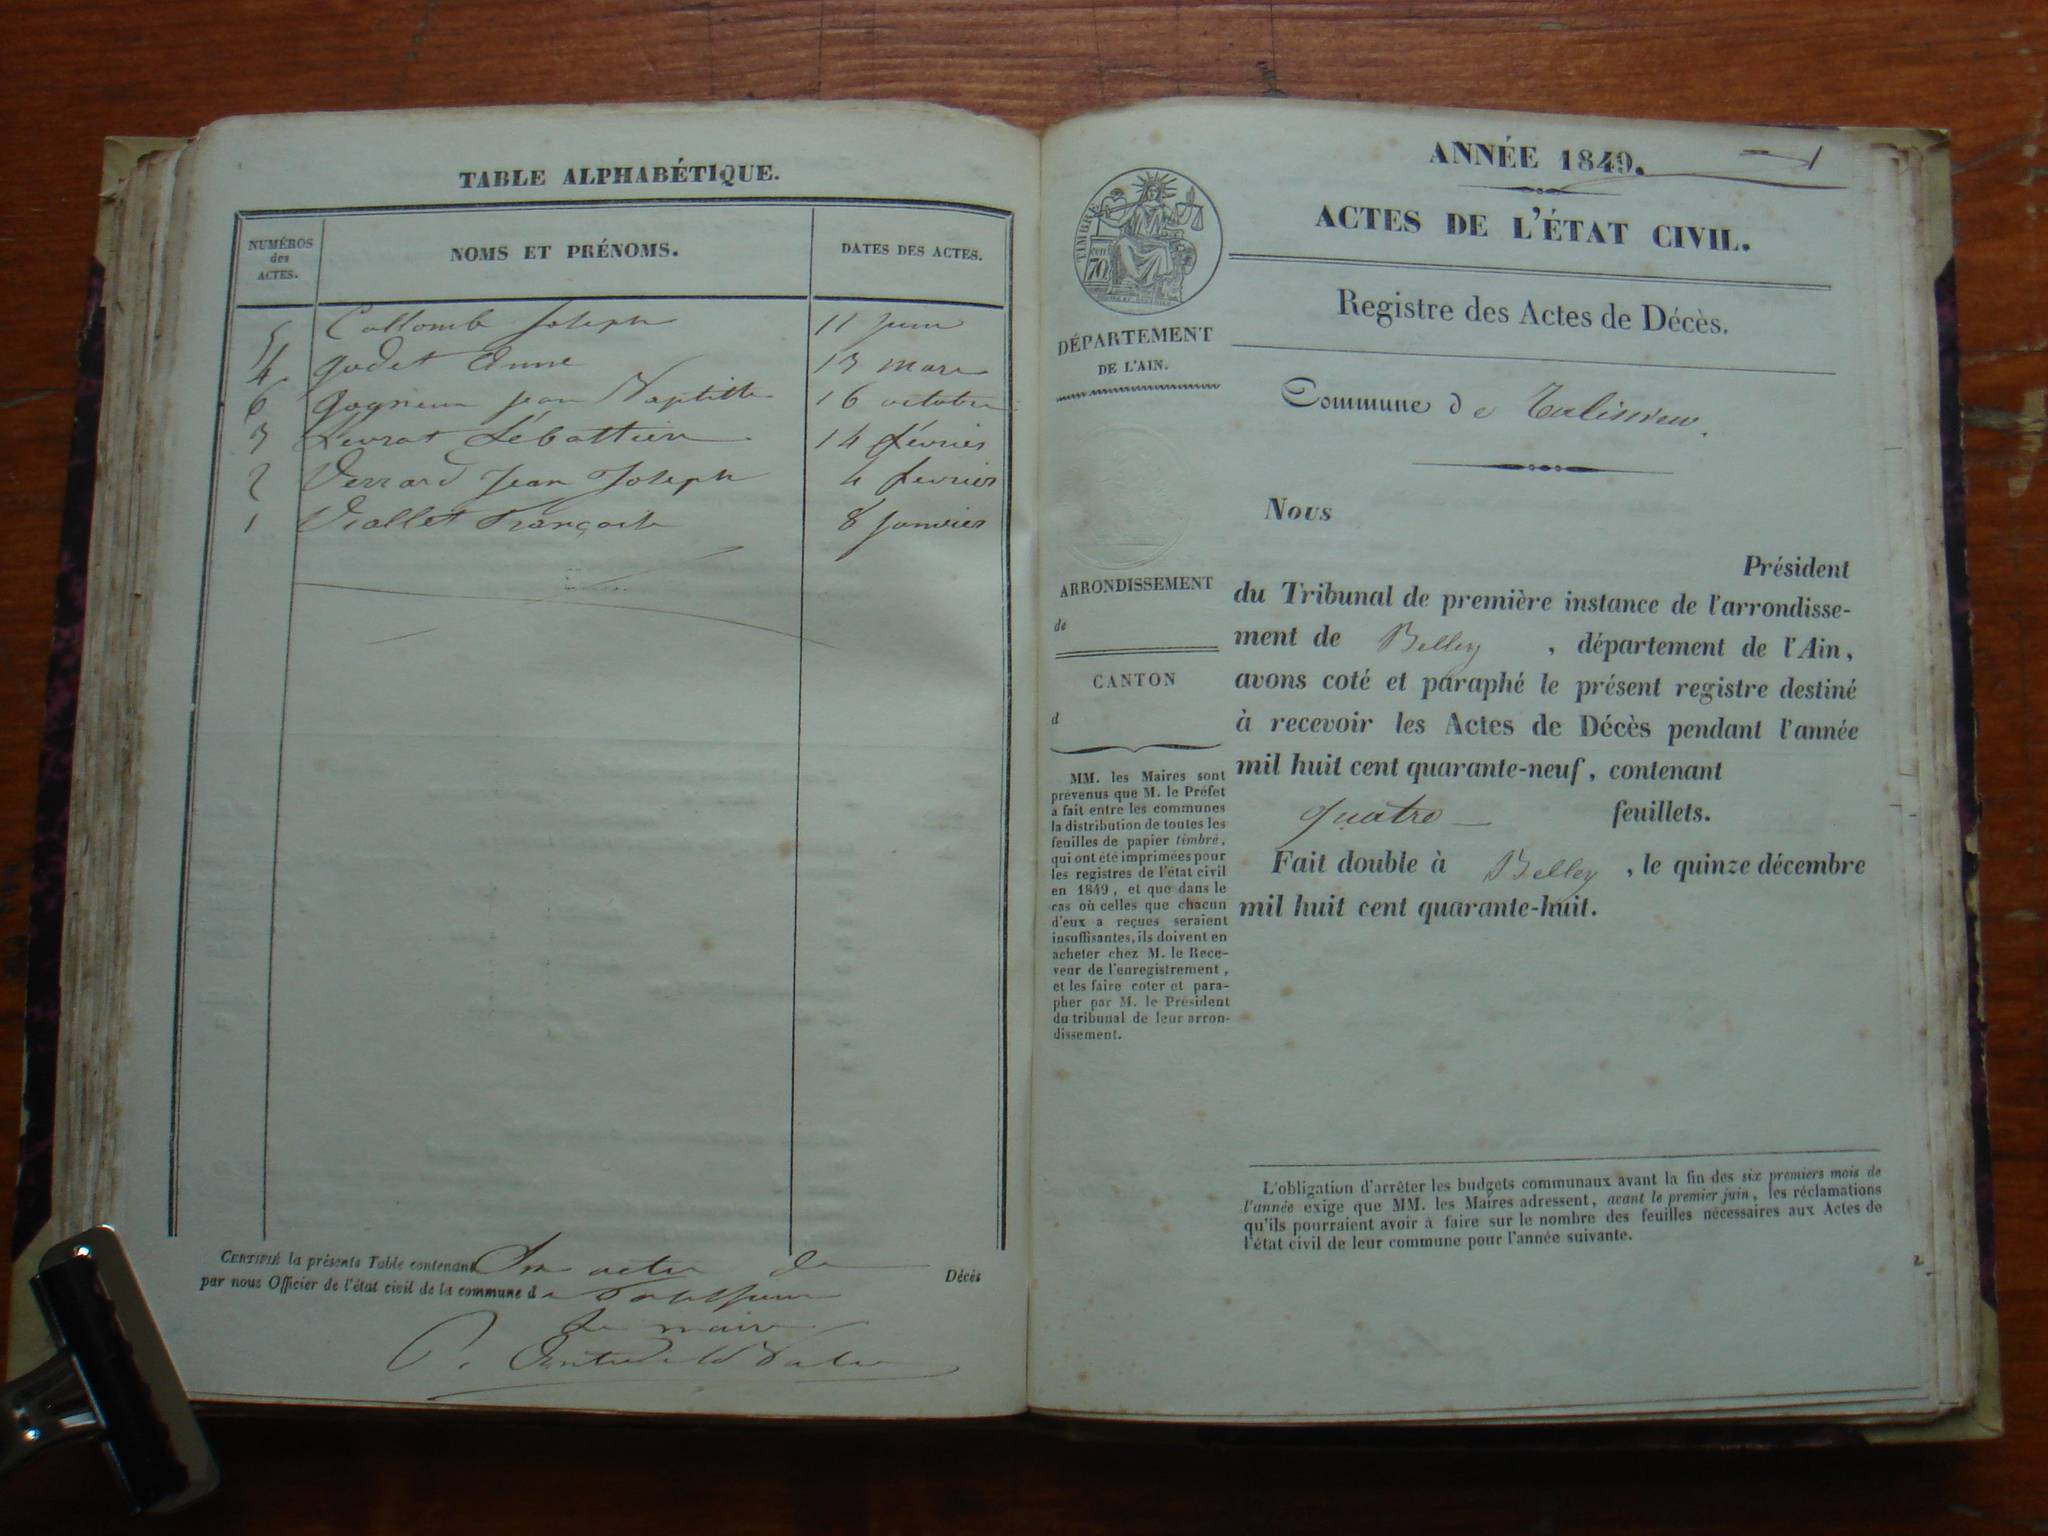 TABLE ALPHABÉTIQUE.
NUMÉROS
des
ACTES.
NOMS ET PRÉNOMS.
DATES DES ACTES.
5 Collomb Joseph 11 juin
4 Godet Anne 13 mars
6 Gogneux jean Baptiste 16 octobre
3 Levrat Sébastien 14 février
2 Verrard Jean Joseph 4 fevrier
1 Viallet François 8 janvier
CERTIFIÉ la présente Table contenant Six actes de Décès
par nous Officier de l'état civil de la commune de
Le maire
ANNÉE 1849. 1
ACTES DE L'ÉTAT CIVIL.
Registre des Actes de Décès.
TIMBRE
70
DÉPARTEMENT
DE L'AIN.
Commune de Talissieu.
Nous
Président
du Tribunal de première instance de l'arrondisse-
ment de Belley, département de l'Ain,
avons coté et paraphé le présent registre destiné
à recevoir les Actes de Décès pendant l'année
mil huit cent quarante-neuf, contenant
quatre feuillets.
Fait double à Belley, le quinze décembre
mil huit cent quarante-huit.
ARRONDISSEMENT
de
CANTON
d
MM. les Maires sont
prévenus que M. le Préfet
a fait entre les communes
la distribution de toutes les
feuilles de papier timbré,
qui ont été imprimées pour
les registres de l'état civil
en 1849, et que dans le
cas où celles que chacun
d'eux a reçues seraient
insuffisantes, ils doivent en
acheter chez M. le Rece-
veur de l'enregistrement,
et les faire coter et para-
pher par M. le Président
du tribunal de leur arron-
dissement.
L'obligation d'arrêter les budgets communaux avant la fin des six premiers mois de
l'année exige que MM. les Maires adressent, avant le premier juin, les réclamations
qu'ils pourraient avoir à faire sur le nombre des feuilles nécessaires aux Actes de
l'état civil de leur commune pour l'année suivante.